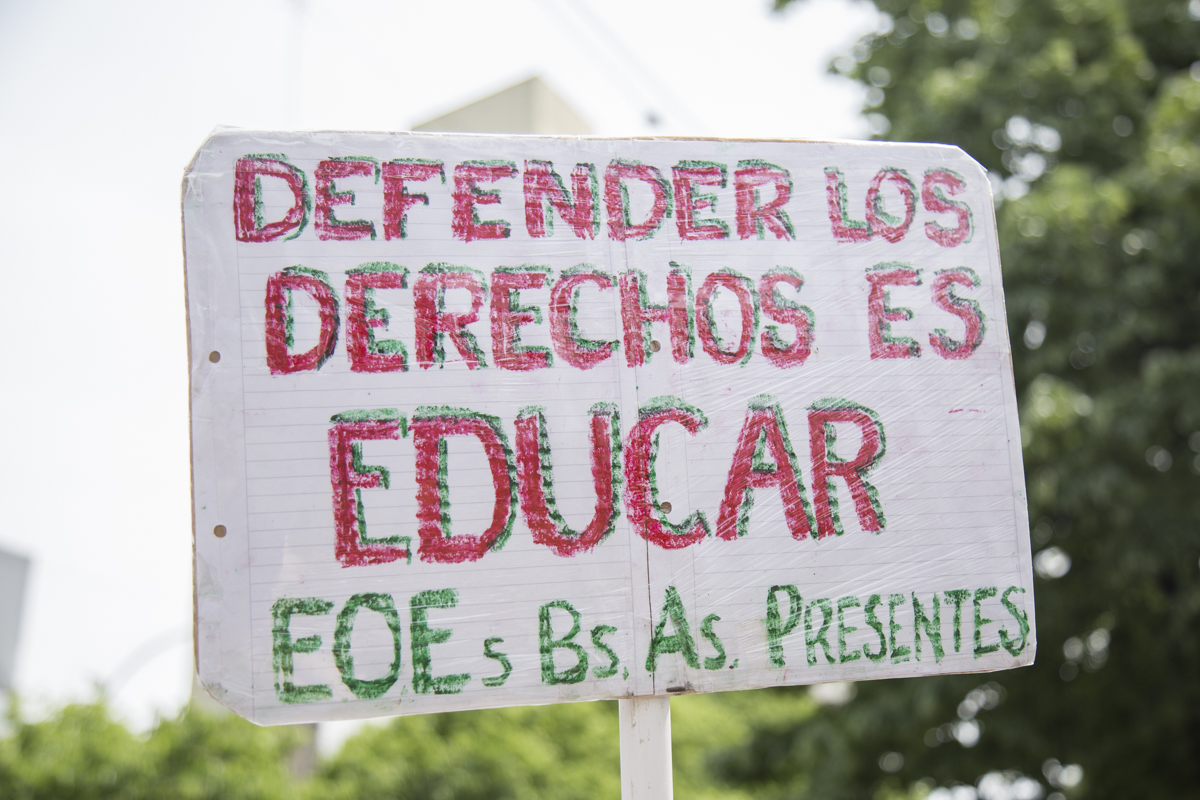 DEFENDER LOS
DERECHOS ES
EDUCAR
EOEs Bs. As. PRESENTES